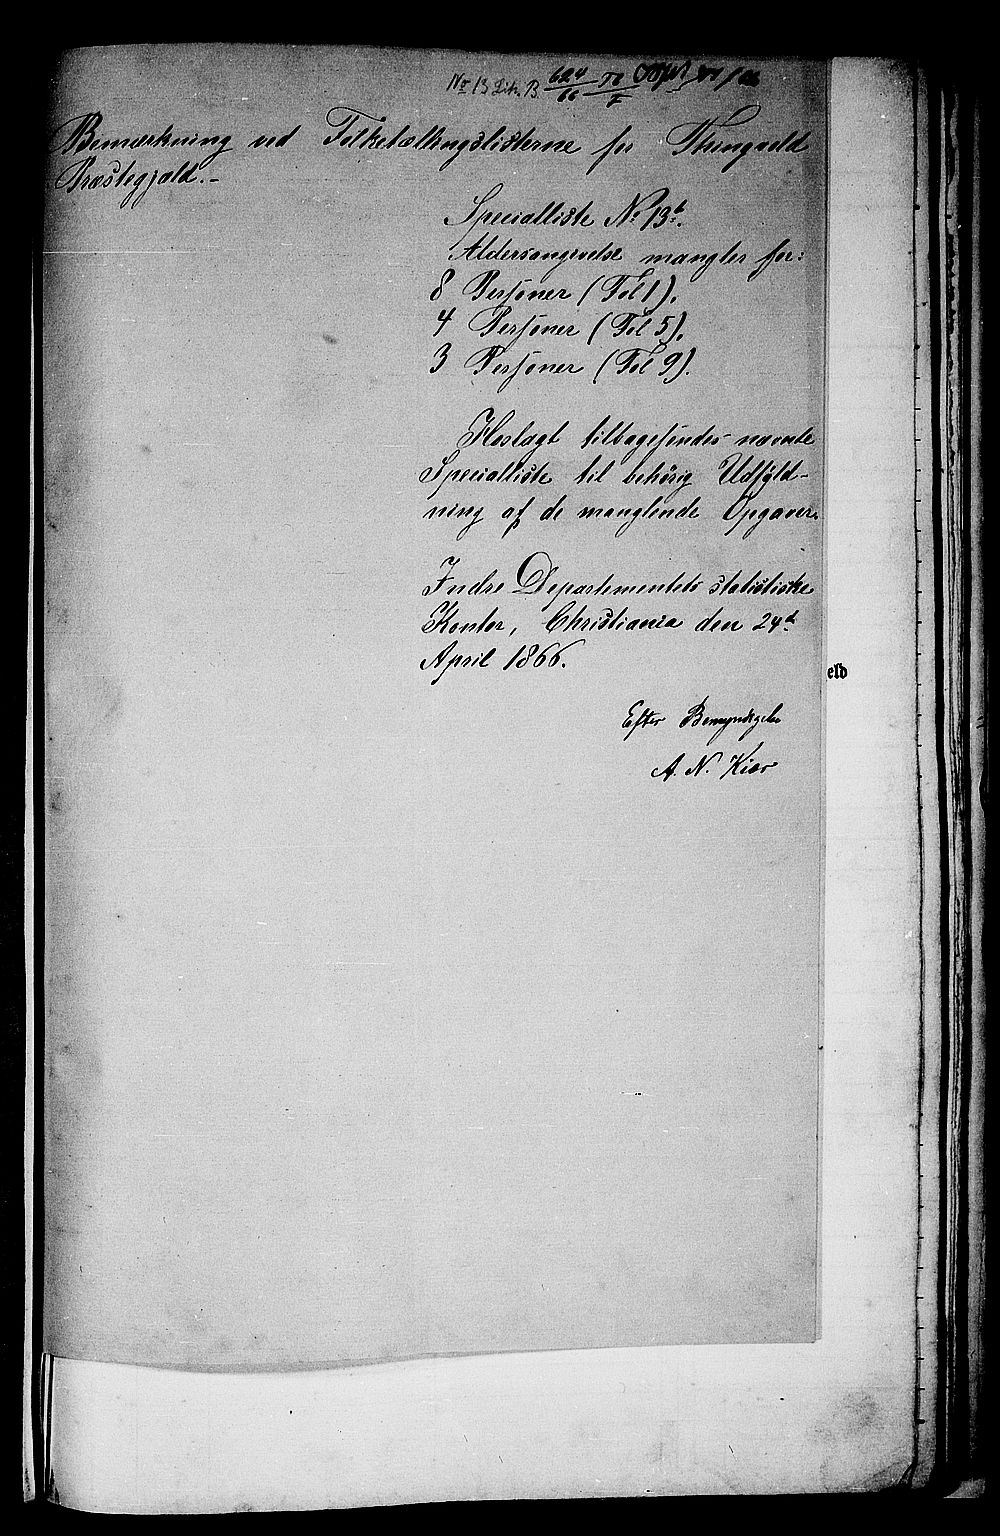 No 13 Litr. B 624/66
Bemærkning ved Folketællingslisterne for Thingvold
Præstegjæld.-
Specialliste No 13b.
Aldersangivelse mangler for:
8 Personer (Fol 1).
4 Personer (Fol 5).
3 Personer (Fol 9).
Hoslagt tilbagesendes nævnte
Specialliste til behørig Udfyld-
ning af de manglende Opgaver.
Indre Departementets statistiske
Kontor, Christiania den 24de
April 1866.
Efter Bemyndigelse
A. N. Kiær
eld